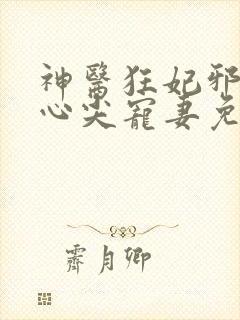 神醫狂妃邪
心尖寵妻免
霽月卿